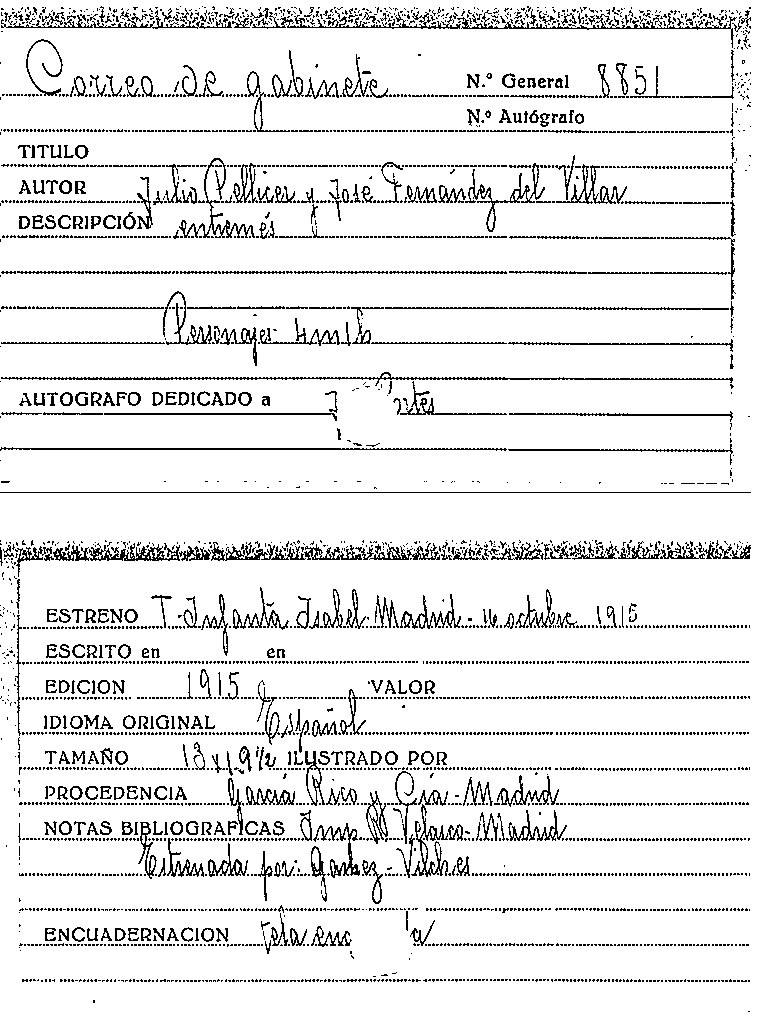 Correo de gabinete N.º General 8851
N.º Autógrafo
TITULO
AUTOR Julio Pellicer y José Fernández del Villar
DESCRIPCIÓN entremés
Personajes 4m1h
AUTOGRAFO DEDICADO a
ESTRENO T. Infanta Isabel-Madrid-16 octubre 1915
ESCRITO en en
EDICION 1915 VALOR
IDIOMA ORIGINAL Español
TAMAÑO 13x19½ ILUSTRADO POR
PROCEDENCIA García Rico y Cía-Madrid
NOTAS BIBLIOGRAFICAS Imp R Velasco-Madrid
Estrenada por: Vilches
ENCUADERNACION tela